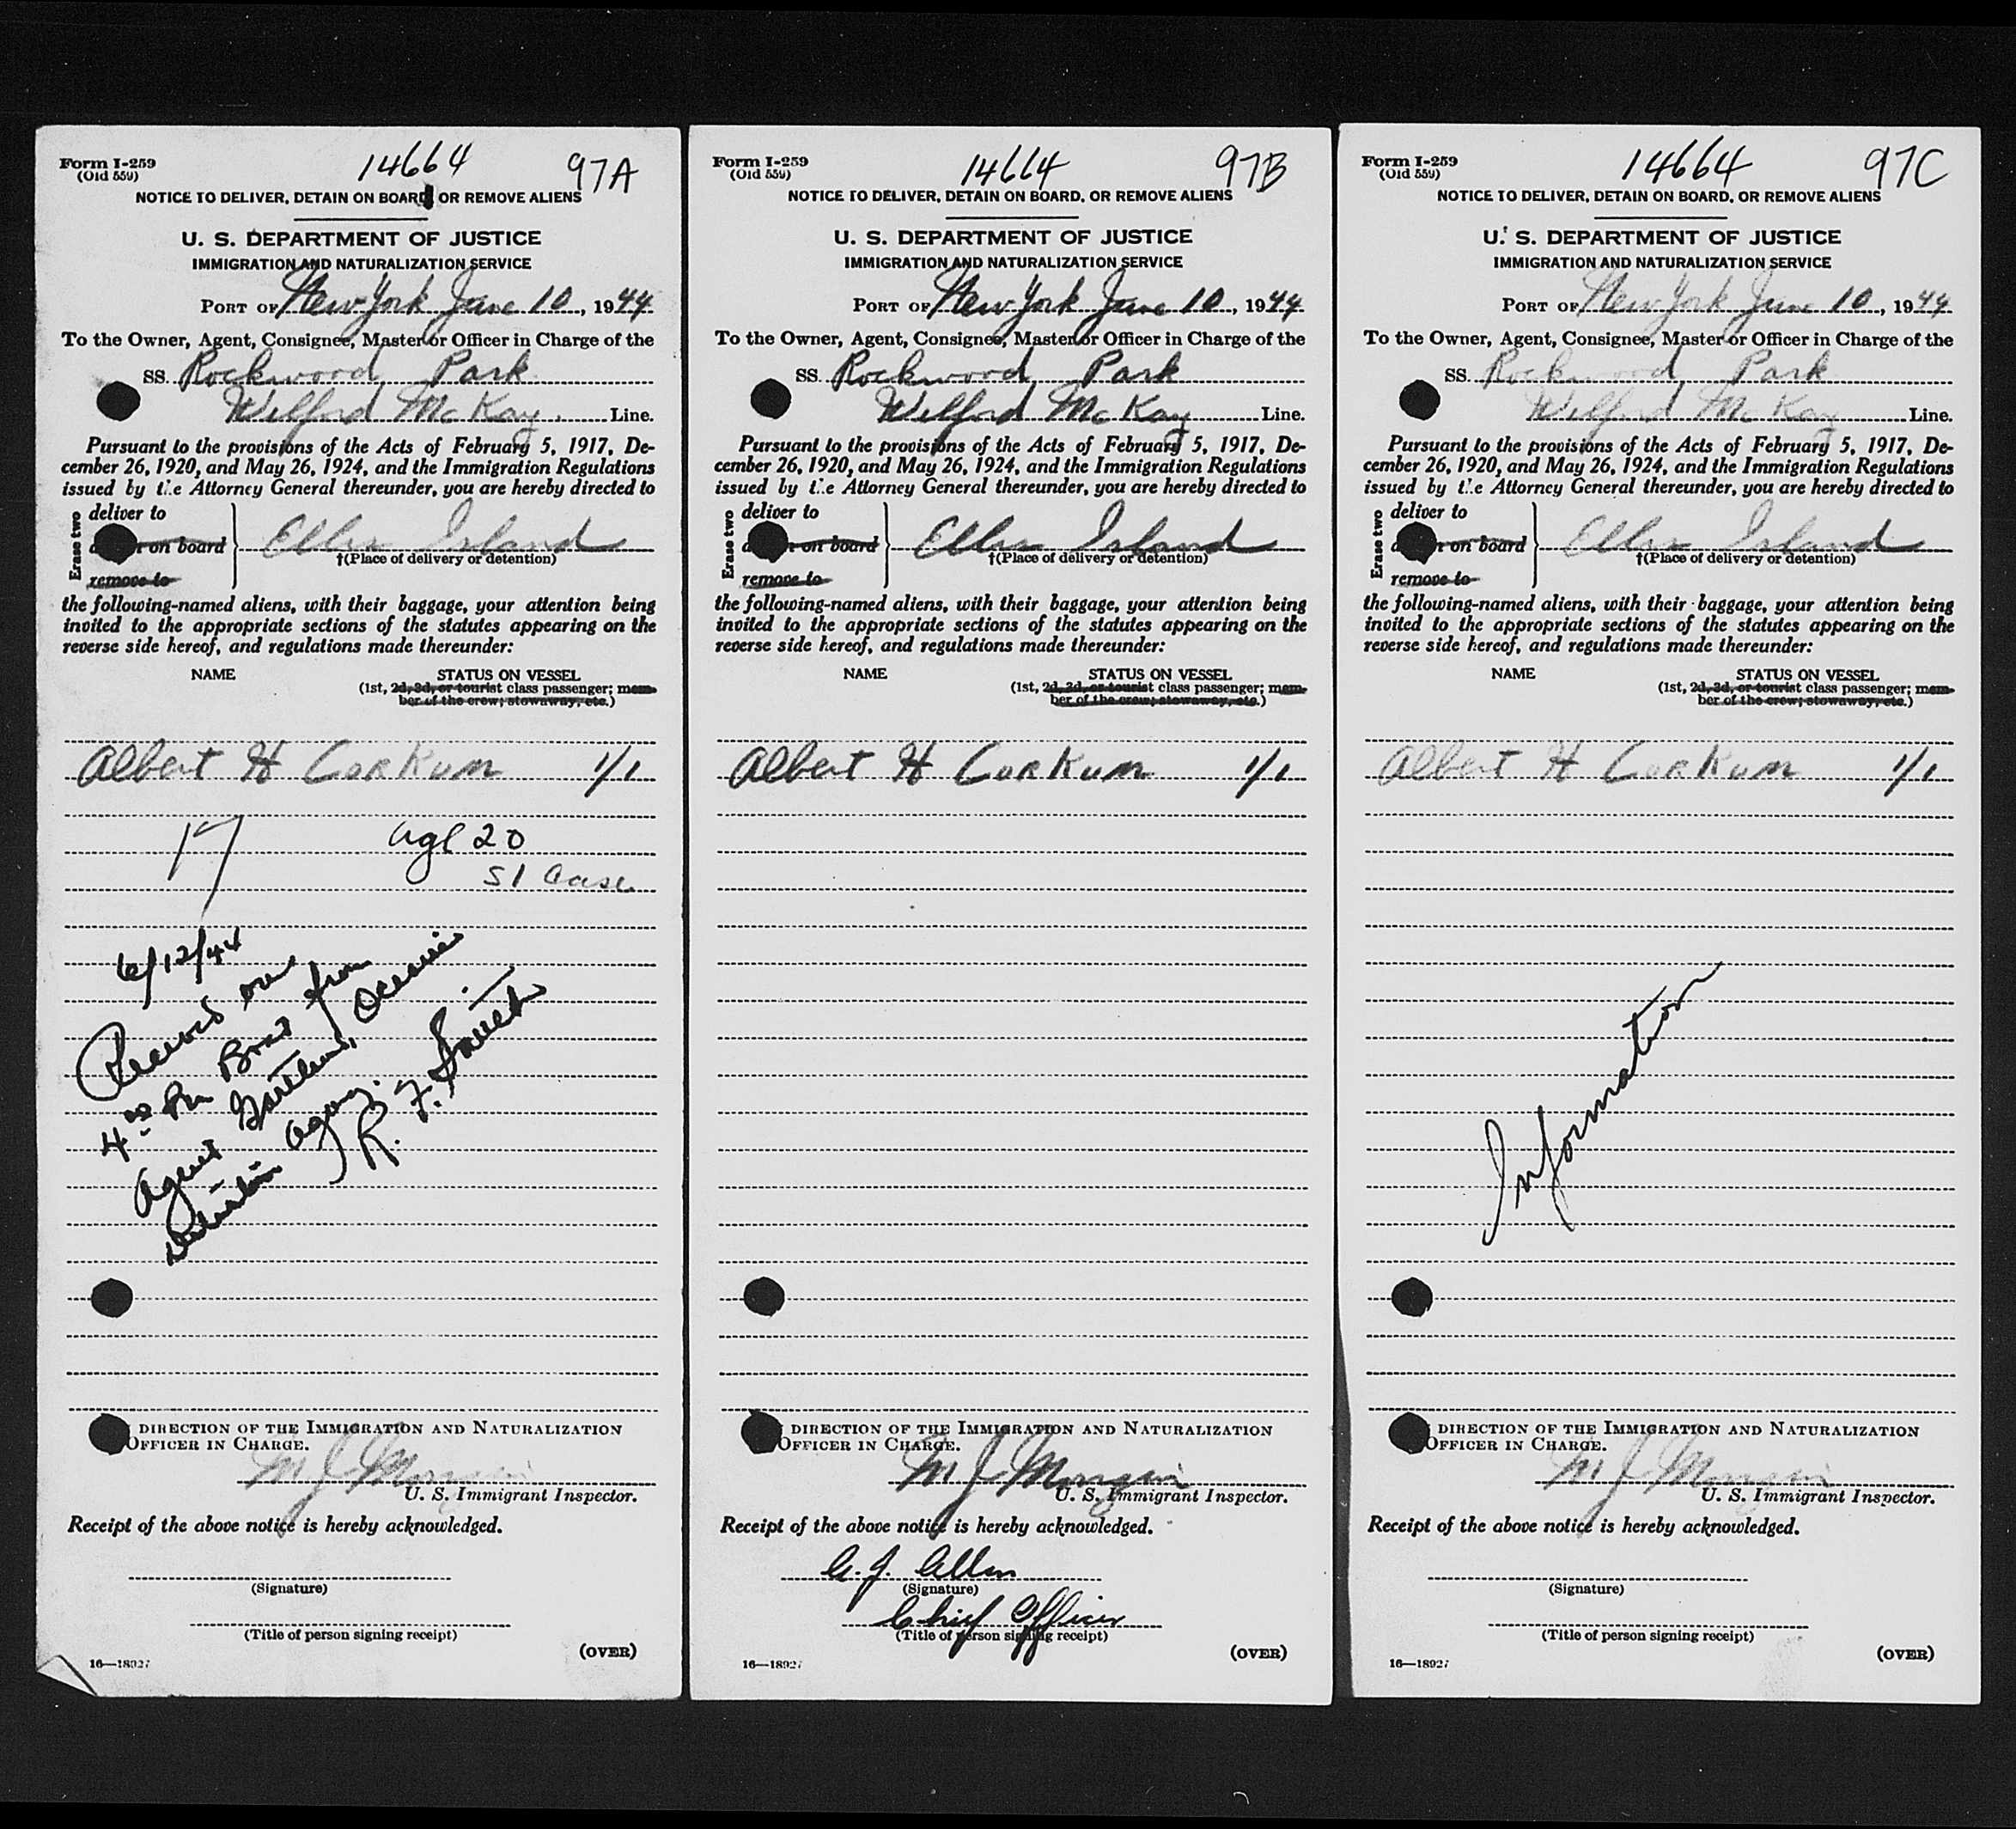 Form I-259
(Old 559)
14664
97A
NOTICE TO DELIVER, DETAIN ON BOARD, OR REMOVE ALIENS
U. S. DEPARTMENT OF JUSTICE
IMMIGRATION AND NATURALIZATION SERVICE
PORT OF New York June 10, 1944
To the Owner, Agent, Consignee, Master or Officer in Charge of the
SS. Rockwood Park
Wilford McKay. Line.
Pursuant to the provisions of the Acts of February 5, 1917, De-
cember 26, 1920, and May 26, 1924, and the Immigration Regulations
issued by the Attorney General thereunder, you are hereby directed to
Erase two
deliver to
on board
remove to
Ellis Island
†(Place of delivery or detention)
the following-named aliens, with their baggage, your attention being
invited to the appropriate sections of the statutes appearing on the
reverse side hereof, and regulations made thereunder:
NAME STATUS ON VESSEL
(1st, 2d, 3d, or tourist class passenger; mem-
ber of the crew; stowaway, etc.)
Albert H Corkum 1/1
17 age 20
SI Case
6/12/44
Received over
4 00 Pm Boat from
Agent Oceanic
Agency.
R. F. Smith
DIRECTION OF THE IMMIGRATION AND NATURALIZATION
OFFICER IN CHARGE.
M J
U. S. Immigrant Inspector.
Receipt of the above notice is hereby acknowledged.
(Signature)
(Title of person signing receipt)
(OVER)
16—18927
Form I-259
(Old 559)
14664
97B
NOTICE TO DELIVER, DETAIN ON BOARD, OR REMOVE ALIENS
U. S. DEPARTMENT OF JUSTICE
IMMIGRATION AND NATURALIZATION SERVICE
PORT OF New York June 10, 1944
To the Owner, Agent, Consignee, Master or Officer in Charge of the
SS. Rockwood Park
Wilford McKay Line.
Pursuant to the provisions of the Acts of February 5, 1917, De-
cember 26, 1920, and May 26, 1924, and the Immigration Regulations
issued by the Attorney General thereunder, you are hereby directed to
Erase two
deliver to
on board
remove to
Ellis Island
†(Place of delivery or detention)
the following-named aliens, with their baggage, your attention being
invited to the appropriate sections of the statutes appearing on the
reverse side hereof, and regulations made thereunder:
NAME STATUS ON VESSEL
(1st, 2d, 3d, or tourist class passenger; mem-
ber of the crew; stowaway, etc.)
Albert H Corkum 1/1
DIRECTION OF THE IMMIGRATION AND NATURALIZATION
OFFICER IN CHARGE.
M J
U. S. Immigrant Inspector.
Receipt of the above notice is hereby acknowledged.
A. J. Allen
(Signature)
Chief Officer
(Title of person signing receipt)
(OVER)
16—18927
Form I-259
(Old 559)
14664
97C
NOTICE TO DELIVER, DETAIN ON BOARD, OR REMOVE ALIENS
U. S. DEPARTMENT OF JUSTICE
IMMIGRATION AND NATURALIZATION SERVICE
PORT OF New York June 10, 1944
To the Owner, Agent, Consignee, Master or Officer in Charge of the
SS. Rockwood Park
Wilford McKay Line.
Pursuant to the provisions of the Acts of February 5, 1917, De-
cember 26, 1920, and May 26, 1924, and the Immigration Regulations
issued by the Attorney General thereunder, you are hereby directed to
Erase two
deliver to
on board
remove to
Ellis Island
†(Place of delivery or detention)
the following-named aliens, with their baggage, your attention being
invited to the appropriate sections of the statutes appearing on the
reverse side hereof, and regulations made thereunder:
NAME STATUS ON VESSEL
(1st, 2d, 3d, or tourist class passenger; mem-
ber of the crew; stowaway, etc.)
Albert H Corkum 1/1
Information
DIRECTION OF THE IMMIGRATION AND NATURALIZATION
OFFICER IN CHARGE.
M J
U. S. Immigrant Inspector.
Receipt of the above notice is hereby acknowledged.
(Signature)
(Title of person signing receipt)
(OVER)
16—18927